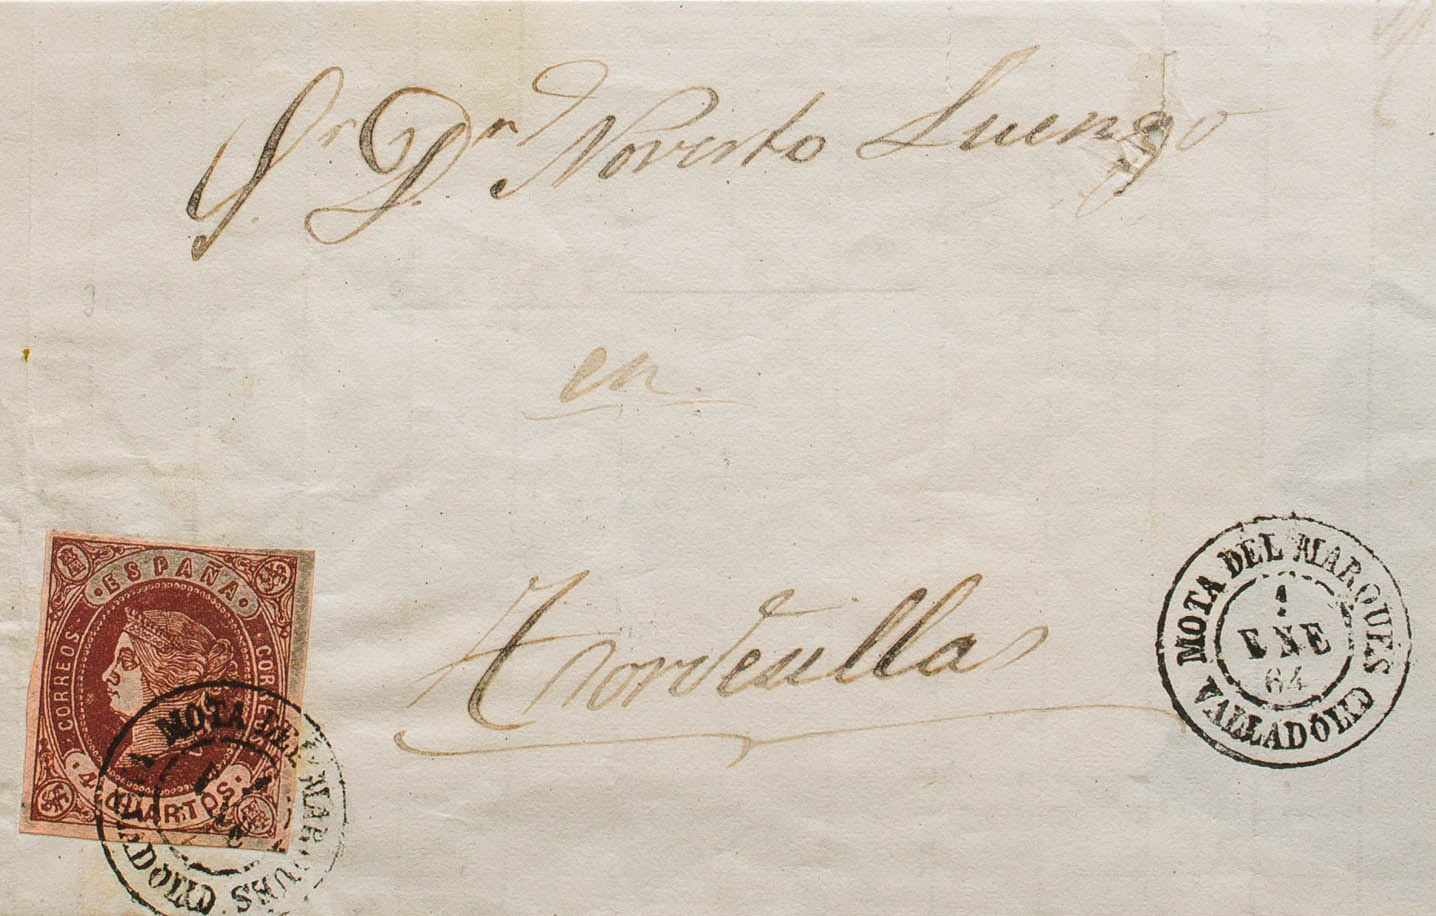 Sr. Dn. Noverto Luengo
en
Tordesilla
ESPAÑA
CORREOS
CORREOS
4 CUARTOS
MOTA DEL MARQUES
VALLADOLID
MOTA DEL MARQUES
1
ENE
64
VALLADOLID